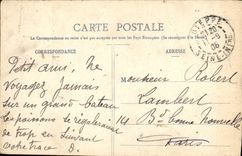 CARTE POSTALE
La Correspondance au recto n'est pas acceptée par tous les Pays Étrangers
CORRESPONDANCE
ADRESSE
DIEPPE
SEINE-INF
20
05
Petit ami, Ne
Voyagez Jamais
sur un grand bateau
les poissons se régaleraient
de trop en suivant
votre trace D.
Monsieur Robert
Lambert
14 Bd Bonne Nouvelle
Paris